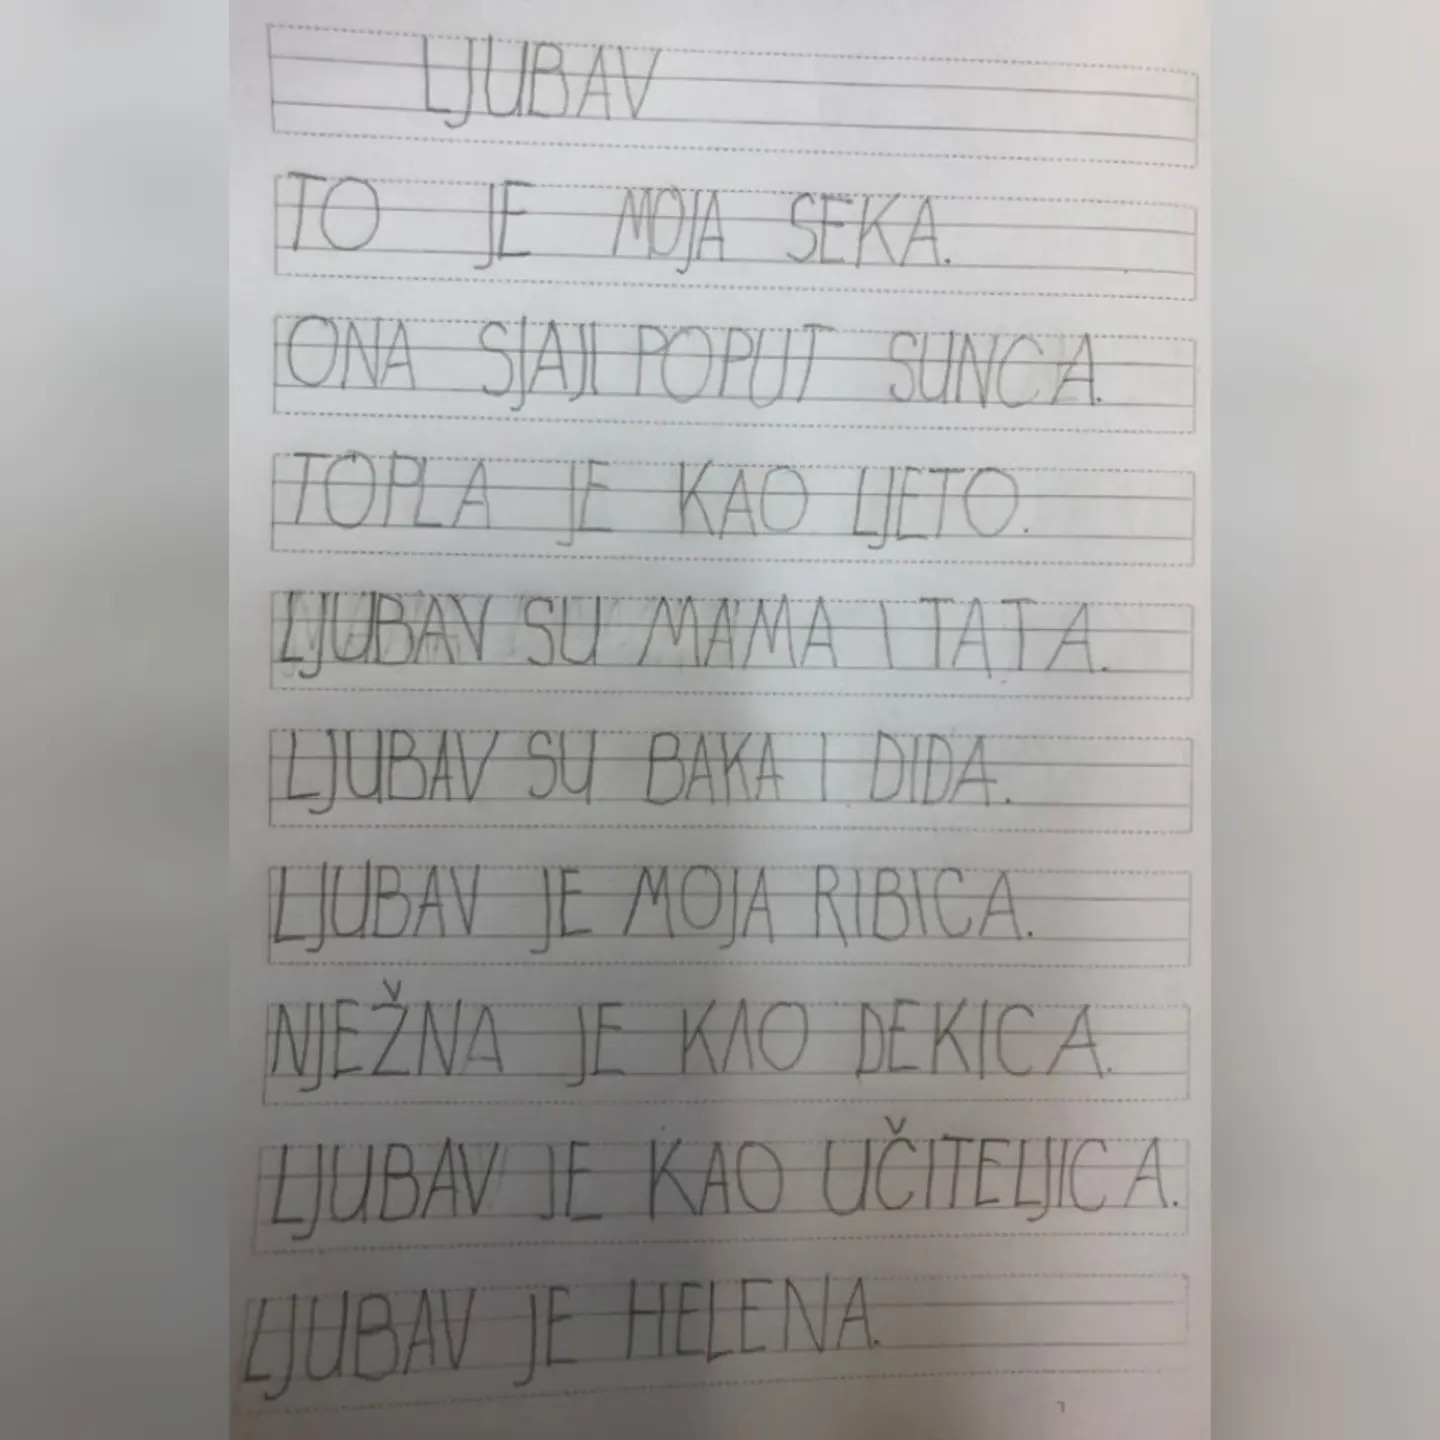 LJUBAV
TO JE MOJA SEKA.
ONA SJAJI POPUT SUNCA.
TOPLA JE KAO LJETO.
LJUBAV SU MAMA I TATA.
LJUBAV SU BAKA I DIDA.
LJUBAV JE MOJA RIBICA.
NJEŽNA JE KAO DEKICA.
LJUBAV JE KAO UČITELJICA.
LJUBAV JE HELENA.
7